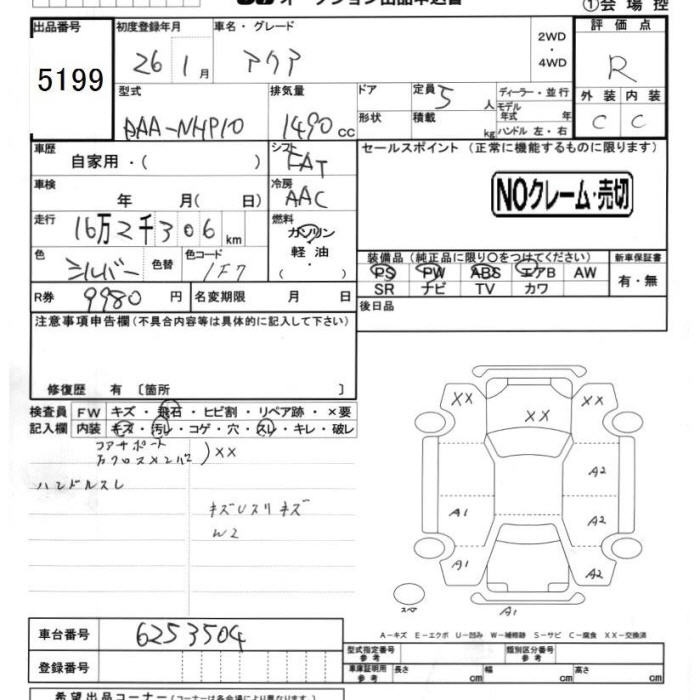 ①会場控
出品番号 初度登録年月 車名・グレード 2WD ・ 4WD 評価点
5199 26 1月 アクア R
型式 排気量 ドア 定員 5人 ディーラー・並行 外装 内装
DAA-NHP10 1490cc 形状 積載 kg モデル年式 年 ハンドル 左・右 C C
車歴 自家用・( ) シフト FAT セールスポイント(正常に機能するものに限ります)
車検 年 月( 日) 冷房 AAC NOクレーム・売切
走行 16万2千306km 燃料 ガソリン 軽油 ( ・ )
色 シルバー 色替 色コード 1F7 装備品(純正品に限り○をつけてください) 新車保証書
PS PW ABS エアB AW 有・無
SR ナビ TV カワ
R券 9980円 名変期限 月 日 後日品
注意事項申告欄(不具合内容等は具体的に記入して下さい)
修復歴 有〔箇所 〕
検査員 FW キズ・飛石・ヒビ割・リペア跡・×要
記入欄 内装 キズ・汚レ・コゲ・穴・スレ・キレ・破レ
コアサポート
クロスメンバ )XX
ハンドルスレ
キズUスリキズ
W2
XX XX XX
A2
A1 A2
A1 A2
スペア A1
A-キズ E-エクボ U-凹み W-補修跡 S-サビ C-腐食 XX-交換済
車台番号 6253504
登録番号
型式指定番号 参考 類別区分番号 参考
車庫証明用 参考 長さ cm 幅 cm 高さ cm
希望出品コーナー